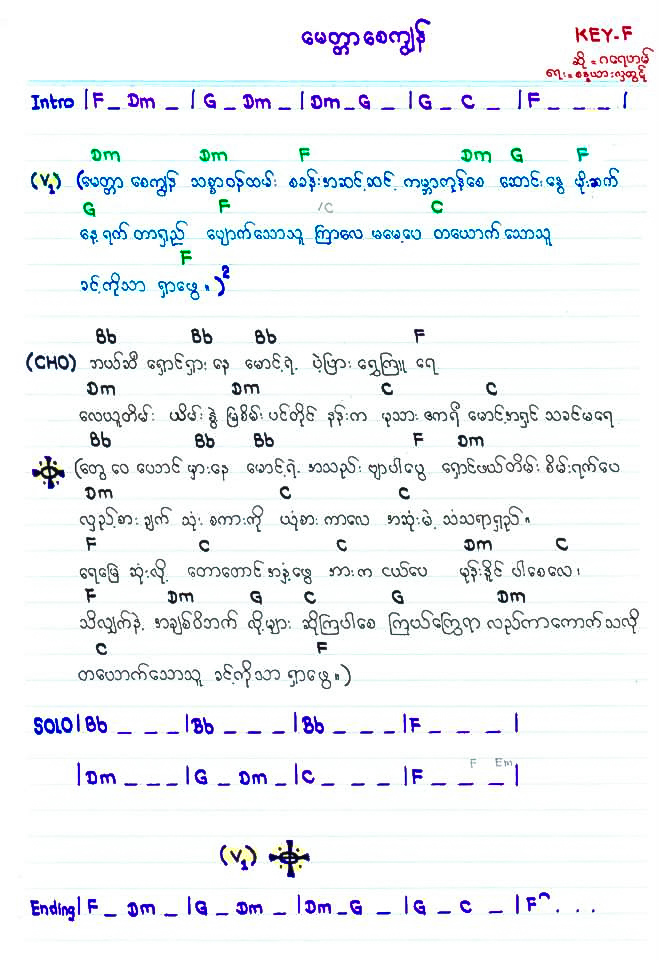 မေတ္တာစေကျွန်
KEY-F
ဆို = ဂရေဟမ်
ရေး =
Intro |F _ Dm _ |G _ Dm _ |Dm _ G _ |G _ C _ |F _ _ _ |
Dm Dm F Dm G F
(V₁) (မေတ္တာ စေကျွန် သစ္စာဝန်ထမ်း စခန်းအဆင့်ဆင့် ကမ္ဘာကုန်စေ ဆောင်းနွေ မိုးဆက်
G F /C C
နေ့ရက် တာရှည် ပျောက်သောသူ ကြာလေ မမေ့ပေ တယောက်သောသူ
F
ခင့်ကိုသာ ရှာဖွေ။)²
Bb Bb Bb F
(CHO) ဘယ်ဆီ ရှောင်ရှား နေ မောင့်ရဲ့ ပဲ့ဖြား ရွှေကြူ ရေ
Dm Dm C C
လေယူတိမ်း ယိမ်းနွဲ့ မြစိမ်း ပင်တိုင် နန်းက မှသား ဧကရီ မောင့်အရှင် သခင်မရေ
Bb Bb Bb F Dm
(တွေ ဝေ ပေဘင် မှားနေ မောင့်ရဲ့ အသည်း ဗျာပါပွေ ရှောင်ဖယ်တိမ်း စိမ်းရက်ပေ
Dm C C
လှည့်စား ချက် သုံး စကားကို ယုံစား ကာလေ အဆုံးမဲ့ သံသရာရှည်။
F C C Dm C
ရေမြေ ဆုံးလို့ တောတောင် အနှံ့ဖွေ အားက ငယ်ပေ မုန်းနိုင် ပါစေလေ၊
F Dm G C G Dm
သိလျှက်နဲ့ အချစ်ဝိဘက် လို့များ ဆိုကြပါစေ ကြယ်ကြွေရာ လည်ကာကောက် သလို
C F
တယောက်သောသူ ခင့်ကိုသာ ရှာဖွေ။)
SOLO |Bb _ _ _ |Bb _ _ _ |Bb _ _ _ |F _ _ _ |
F Em
|Dm _ _ _ |G _ Dm _ |C _ _ _ |F _ _ _ |
(V₁)
Ending |F _ Dm _ |G _ Dm _ |Dm _ G _ |G _ C _ |F . . .